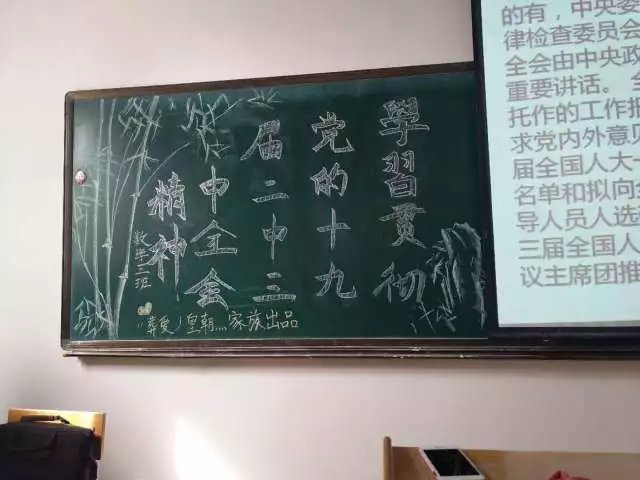 學習貫彻
党的十九
届二中三
中全會
精神
数学二班
“葬爱”皇朝...家族出品
的有，中央委
律检查委员会
全会由中央政
重要讲话。全
托作的工作报
求党内外意见
届全国人大
名单和拟向
导人员人选
三届全国人
议主席团推